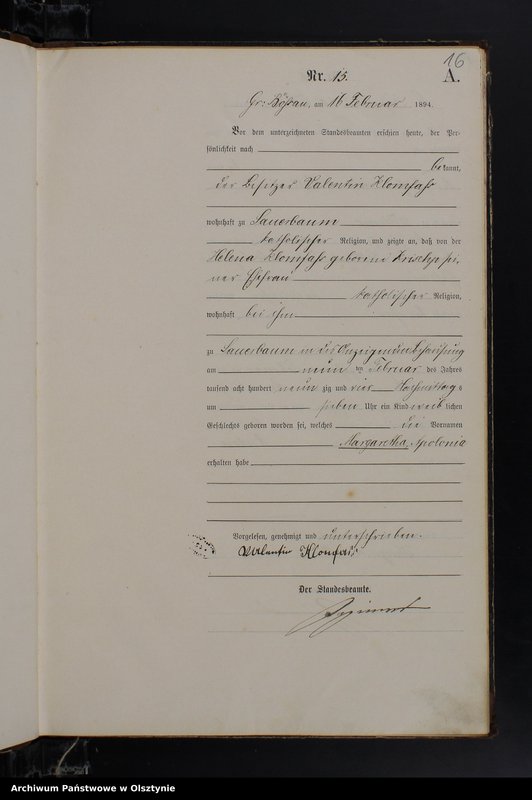 16
Nr. 13.
A.
Gr: Bößau, am 16 Februar 1894.
Vor dem unterzeichneten Standesbeamten erschien heute, der Per-
sönlichkeit nach
bekannt,
der Besitzer Valentin Klomfaß
wohnhaft zu Sauerbaum
katholischer Religion, und zeigte an, daß von der
Helena Klomfaß geborene sei-
ner Ehefrau
katholischer Religion,
wohnhaft bei ihm
zu Sauerbaum in des Anzeigenden Behausung
am neun ten Februar des Jahres
tausend acht hundert neun zig und vier Nachmittags
um sieben Uhr ein Kind weib lichen
Geschlechts geboren worden sei, welches die Vornamen
Margaretha, Apolonia
erhalten habe
Vorgelesen, genehmigt und unterschrieben.
Valentin Klomfaß
Der Standesbeamte.
Archiwum Państwowe w Olsztynie